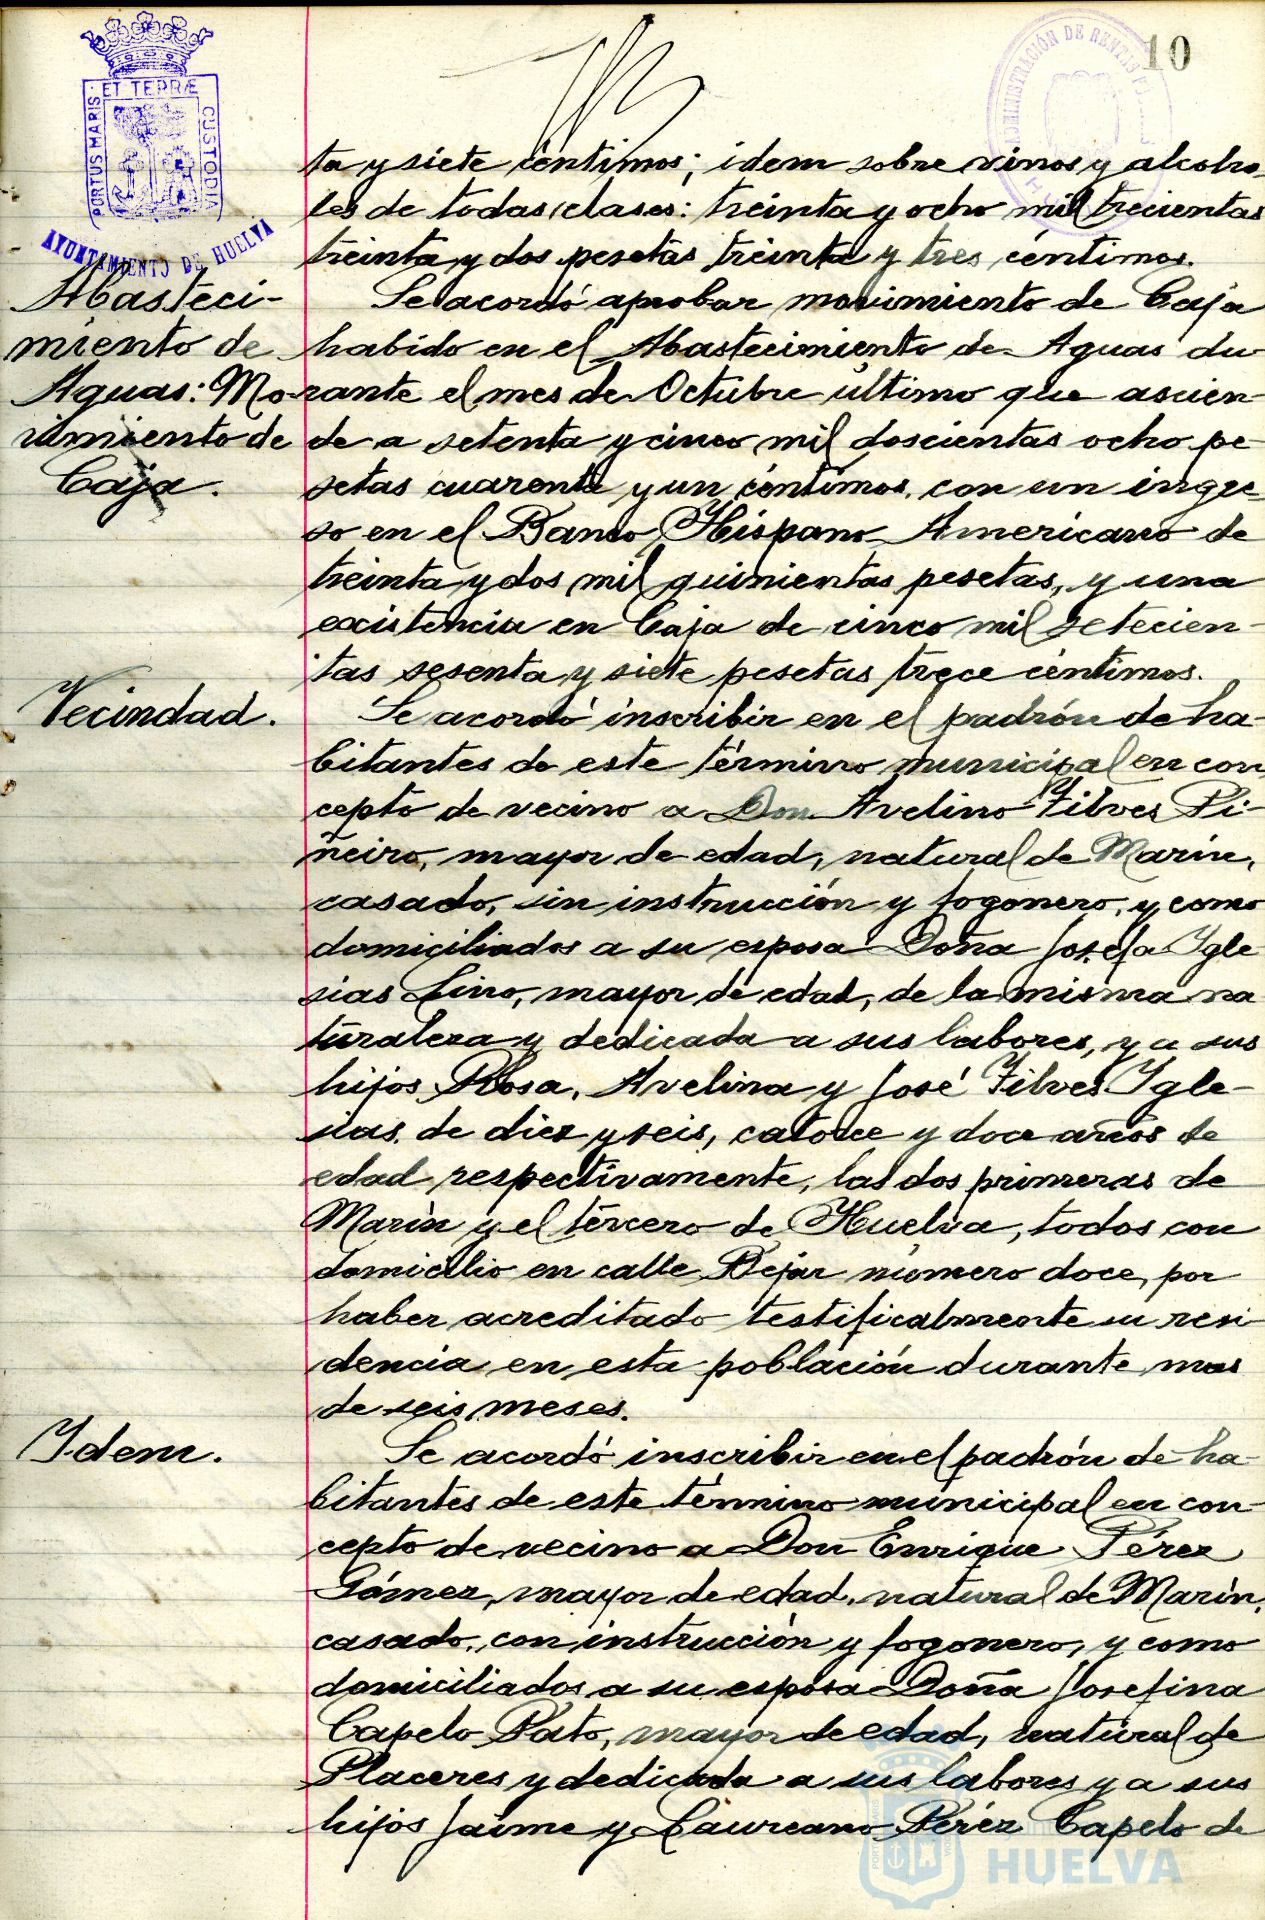 10
PORTUS MARIS ET TERRÆ CUSTODIA
AYUNTAMIENTO DE HUELVA
ADMINISTRACIÓN DE RENTAS
ta y siete céntimos; idem sobre vinos y alcoho-
les de todas clases: treinta y ocho mil trecientas
treinta y dos pesetas treinta y tres céntimos.
Abasteci-
miento de
Aguas: Mo-
vimiento de
Caja.
Se acordó aprobar movimiento de Caja
habido en el Abastecimiento de Aguas du-
rante el mes de Octubre último que ascien-
de a setenta y cinco mil doscientas ocho pe-
setas cuarenta y un céntimos, con un ingre-
so en el Banco Hispano Americano de
treinta y dos mil quinientas pesetas, y una
existencia en Caja de cinco mil setecien-
tas sesenta y siete pesetas trece céntimos.
Vecindad.
Se acordó inscribir en el padrón de ha-
bitantes de este término municipal en con-
cepto de vecino a Don Avelino Filves Pi-
ñeiro, mayor de edad, natural de Marín,
casado, sin instrucción y fogonero, y como
domiciliados a su esposa Doña Josefa Ygle-
sias Lino, mayor de edad, de la misma na-
turaleza y dedicada a sus labores, y a sus
hijos Rosa, Avelina y José Filves Ygle-
sias, de diez y seis, catorce y doce años de
edad respectivamente, las dos primeras de
Marín y el tercero de Huelva, todos con
domicilio en calle Bejar número doce, por
haber acreditado testificalmente su resi-
dencia en esta población durante mas
de seis meses.
Ydem.
Se acordó inscribir en el padrón de ha-
bitantes de este término municipal en con-
cepto de vecino a Don Enrique Pérez
Gómez, mayor de edad, natural de Marín,
casado, con instrucción y fogonero, y como
domiciliados a su esposa Doña Josefina
Capelo Pato, mayor de edad, natural de
Placeres y dedicada a sus labores y a sus
hijos Jaime y Laureano Pérez Capelo de
HUELVA